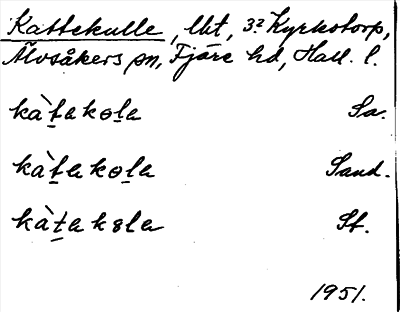 Kattekulle, lht, 3² Kyrkotorp,
Älvsåkers sn, Fjäre hd, Hall. l.
kàt̠akɵl̠a Sa.
kàt̠akɵl̠a Sand.
kàt̠akɵla St.
1951.